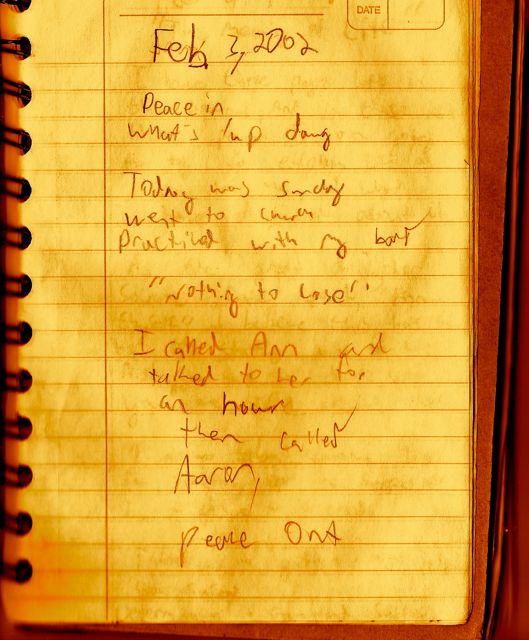 DATE
Feb 3, 2002
Peace in
What's up dawg
Today was sunday
went to church
Practiced with my band
"Nothing to Lose"
I called Ann and
talked to her for
an hour
then called
Aaron,
peace Out